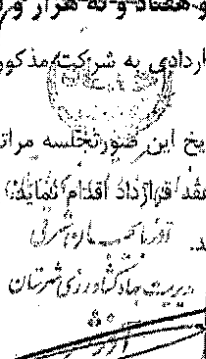 و هفتاد و نه هزار و
اردادی به شرکت مذکور
یخ این صورتجلسه مراتب
عقد قرارداد اقدام نماید.
د.
مدیریت جهاد کشاورزی شهرستان